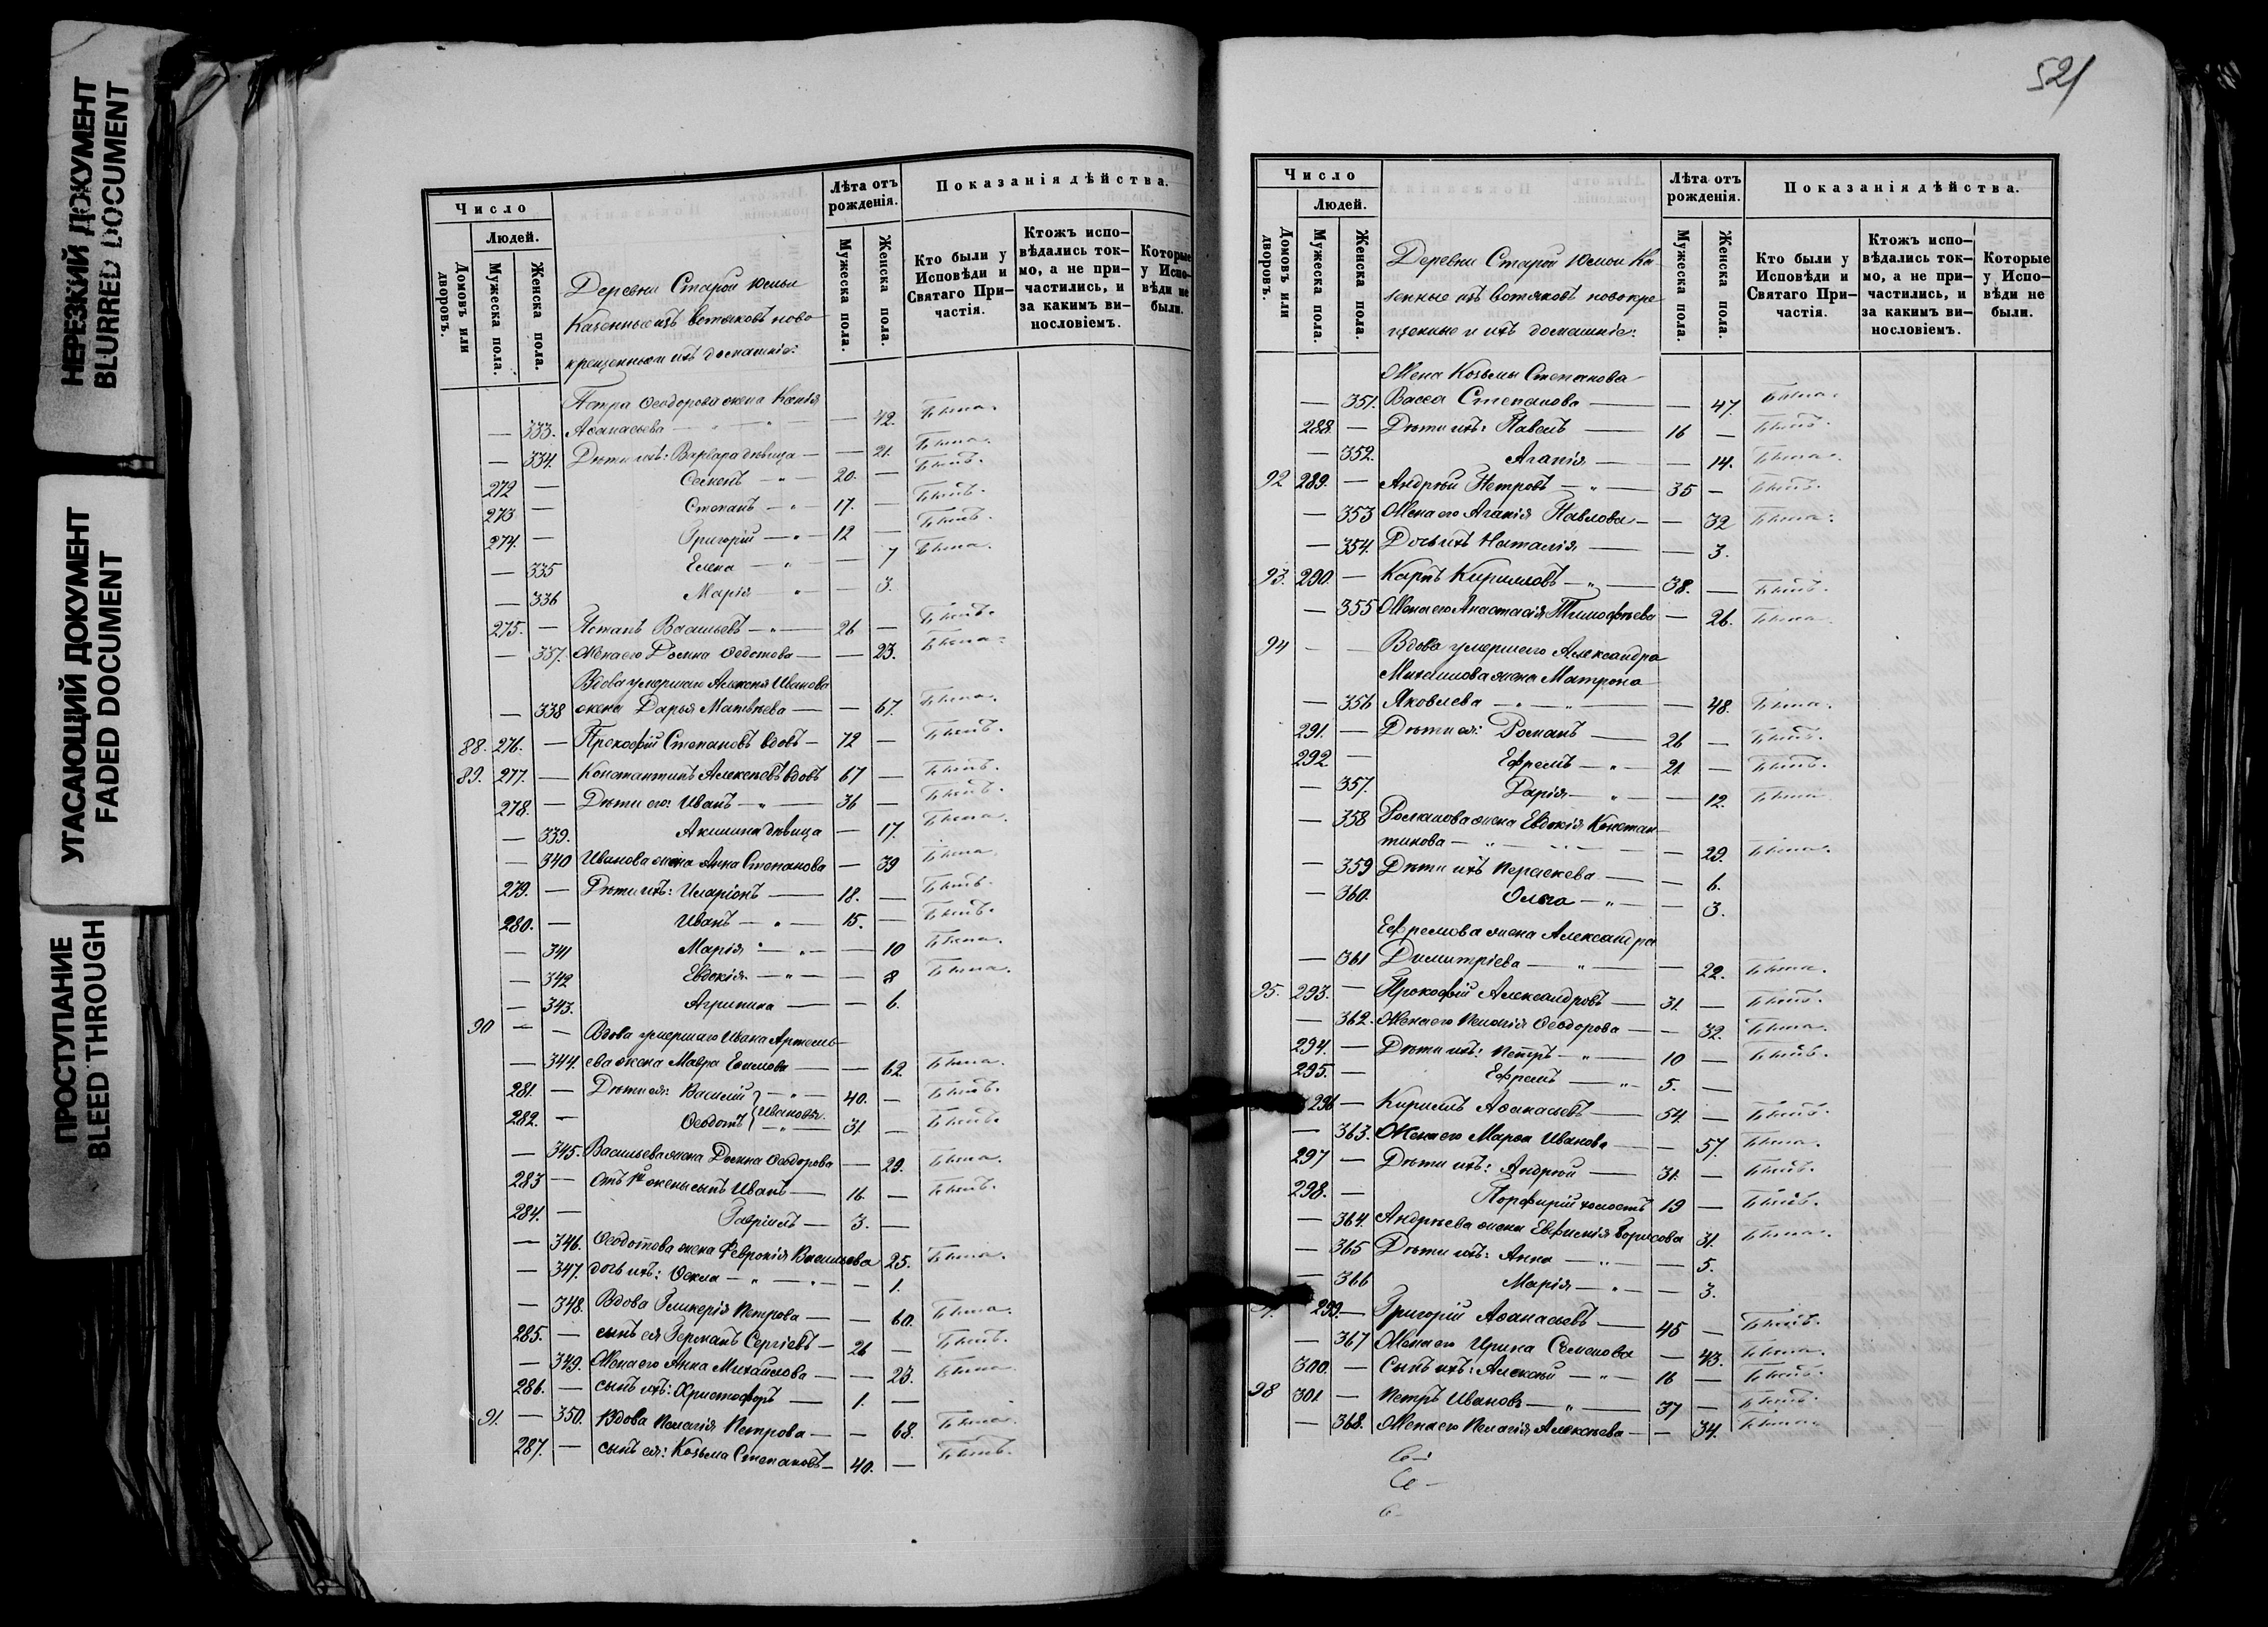 НЕРЕЗКИЙ ДОКУМЕНТ
BLURRED DOCUMENT
УГАСАЮЩИЙ ДОКУМЕНТ
FADED DOCUMENT
ПРОСТУПАНИЕ
BLEED THROUGH
Число
Людей.
Домовъ или дворовъ.
Мужеска пола.
Женска пола.
Деревни Старой Юмьи
Казенные изъ вотяковъ ново
крещенные и ихъ домашніе:
Лѣта отъ рожденія.
Мужеска пола.
Женска пола.
Показанія дѣйства.
Кто были у Исповѣди и Святаго Причастія.
Ктожъ исповѣдались токмо, а не причастились, и за какимъ винословіемъ.
Которые у Исповѣди не были.
Петра Ѳеодорова жена
— 333. Аѳанасьева — — 42. Была.
— 334. Дѣти ихъ: Варвара дѣвица — — 21. Была.
272 — Семенъ — „ — 20. — Былъ.
273 — Степанъ — „ — 17. — Былъ.
274. — Григорій — „ — 12 — Былъ.
— 335 Елена — „ — — 7 Была.
— 336 Марія „ — — 3.
275. — Васильевъ — „ — 26 — Былъ.
— 337. Жена его Домна Ѳедотова — — 23. Была.
Вдова умершаго Алексѣя Иванова
— 338 жена Дарья Матвѣева — — 67. Была.
88. 276. — Прокофій Степановъ вдовъ — 72 — Былъ.
89. 277. — Константинъ Алексѣевъ вдовъ 67 — Былъ.
278. — Дѣти его: Иванъ — „ — 36 — Былъ.
— 339. Акилина дѣвица — 17. Была.
— 340 Иванова жена Анна Степанова — 39 Была.
279. — Дѣти ихъ: Иларіонъ — 18. — Былъ.
280. — Иванъ — „ — 15. — Былъ.
— 341 Марія — „ — — 10 Была.
— 342 Евдокія — „ — — 8 Была.
— 343. Агрипина — — 6.
90 — — Вдова умершаго Ивана Артемь
— 344. ева жена Мавра Ефимова — — 62. Была.
281. — Дѣти ея: Василій } — „ — 40. — Былъ.
282. — Ѳеодотъ { Ивановы. — „ — 31. — Былъ.
— 345. Васильева жена Домна Ѳеодорова — 29. Была.
283 — Отъ 1й жены сынъ Иванъ — 16. — Былъ.
284. — Гавріилъ — 3. —
— 346. Ѳеодотова жена Феврокія Васильева 25. Была.
— 347. дочь ихъ: Ѳекла — „ — „ — — 1.
— 348. Вдова Гликерія Петрова — — 60. Была.
285. — сынъ ея Германъ Сергіевъ — 26 — Былъ.
— 349. Жена его Анна Михайлова — — 23. Была.
286. — сынъ ихъ: Христофоръ — 1. —
91. — 350. Вдова Пелагія Петрова — — 68. Была.
287. — сынъ ея: Козьма Степановъ — 40. — Былъ.
521
Число
Людей.
Домовъ или дворовъ.
Мужеска пола.
Женска пола.
Деревни Старой Юмьи Ка
зенные изъ вотяковъ новокре
щенные и ихъ домашніе:
Лѣта отъ рожденія.
Мужеска пола.
Женска пола.
Показанія дѣйства.
Кто были у Исповѣди и Святаго Причастія.
Ктожъ исповѣдались токмо, а не причастились, и за какимъ винословіемъ.
Которые у Исповѣди не были.
Жена Козьмы Степанова
— 351. Васса Степанова — — 47. Была.
288. — Дѣти ихъ: Павелъ — 16 — Былъ.
— 352. Агапія — — 14. Была.
92 289. — Андрей Петровъ — „ — 35 — Былъ.
— 353 Жена его Агапія Павлова — — 32 Была.
— 354. Дочь ихъ Наталія — — 3.
93. 290. — Карпъ Кирилловъ — „ — 38. — Былъ.
— 355 Жена его Анастасія Тимофѣева — 26. Была.
94 — — Вдова умершаго Александра
Михайлова жена Матрона
— 356 Яковлева — „ — — 48. Была.
291. — Дѣти ея: Романъ — 26 — Былъ.
292. — Ефремъ — „ — 21. — Былъ.
— 357. Дарія — „ — — 12. Была
— 358 Романова жена Евдокія Констан
тинова — „ — — 29. Была.
— 359 Дѣти ихъ Параскева — — 6.
— 360. Ольга — „ — — 3.
Ефремова жена Александра
— 361 Димитріева — „ — — 22. Была.
95. 293. — Прокофій Александровъ — 31. — Былъ.
— 362. Жена его Ѳеодорова — — 32. Была.
294. — Дѣти ихъ: Петръ — „ — 10 — Былъ.
295. — Ефремъ — „ — 5. —
296 — Кириллъ Аѳанасьевъ — 54. — Былъ.
— 363. Жена его Марѳа Иванова — 57. Была.
297 — Дѣти ихъ: Андрей — 31. — Былъ.
298. — Порфирій холостъ 19 — Былъ.
— 364. Андрѣева жена Евфимія Борисова 31. Была.
— 365 Дѣти ихъ: Анна — „ — — 5.
— 366 Марія — „ — — 3.
299. — Григорій Аѳанасьевъ — 45 — Былъ.
— 367 Жена его Ирина Семенова — 43. Была.
300. — Сынъ ихъ: Алексѣй — „ — 16 — Былъ.
98 301. — Петръ Ивановъ — „ — 37 — Былъ.
— 368. Жена его Пелагія Алексѣева — — 34. Была